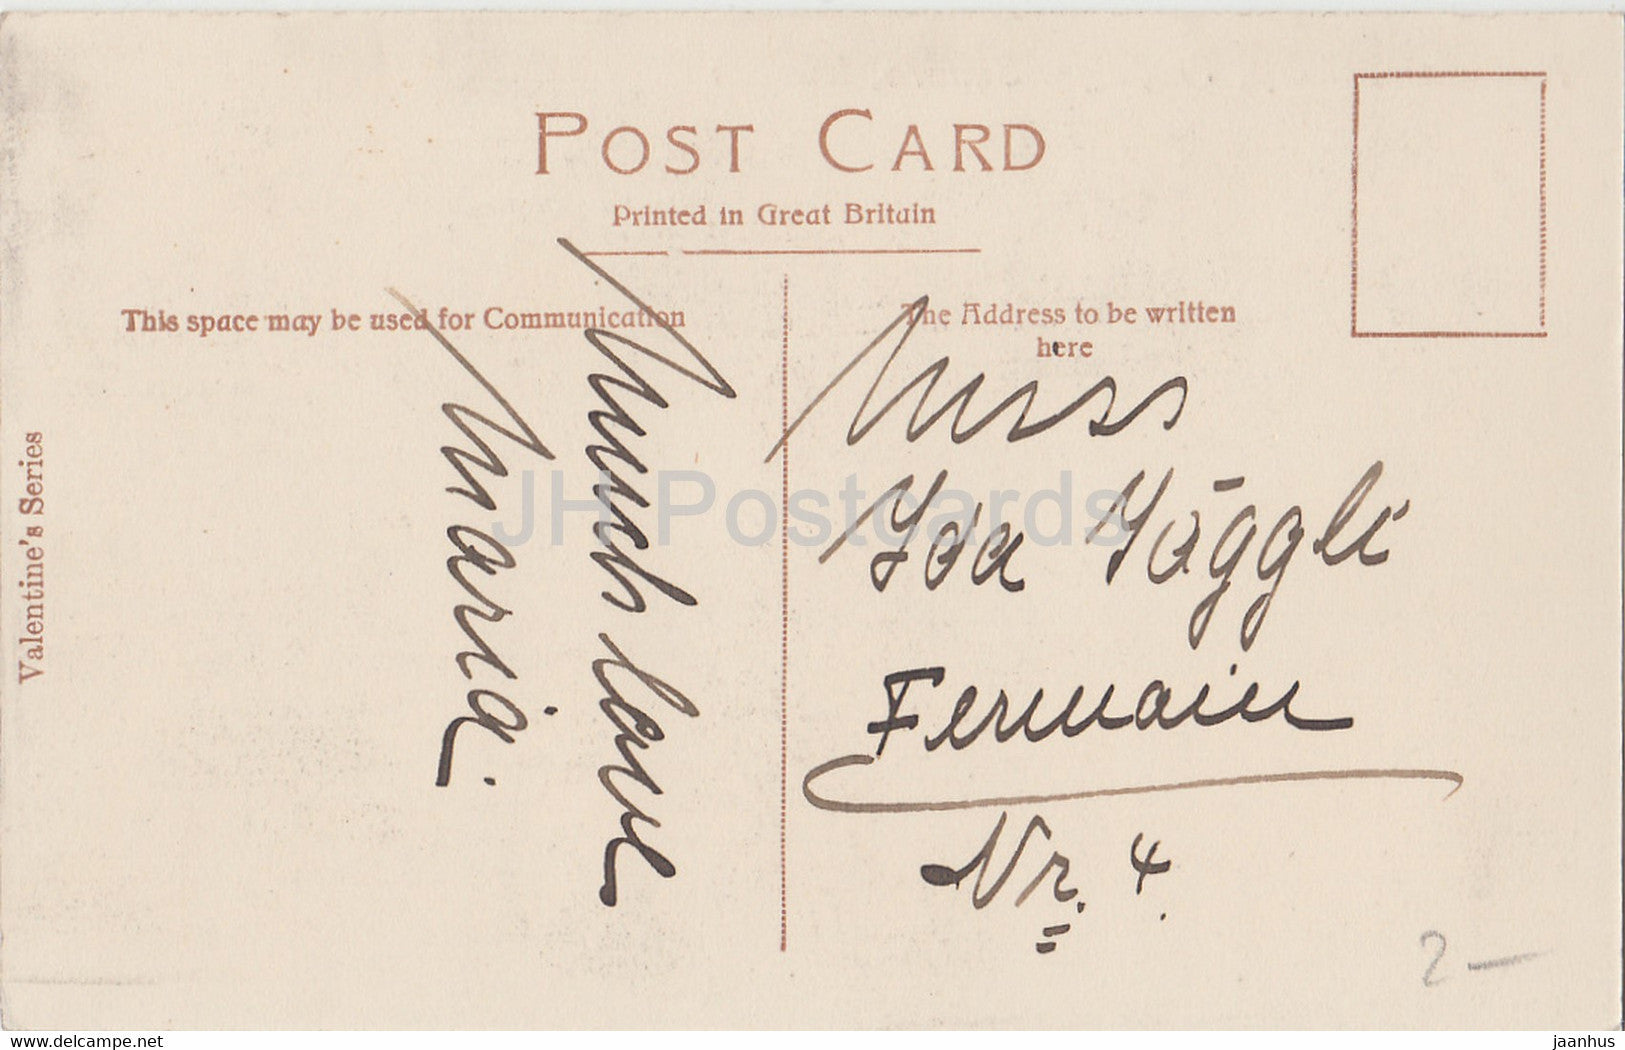 POST CARD
Printed in Great Britain
This space may be used for Communication
The Address to be written
here
Valentine's Series
Much love
Maria.
Miss
Ida Jöggli
Fermain
Nr. 4.
2-
JH Postcards
www.delcampe.net
jaanhus